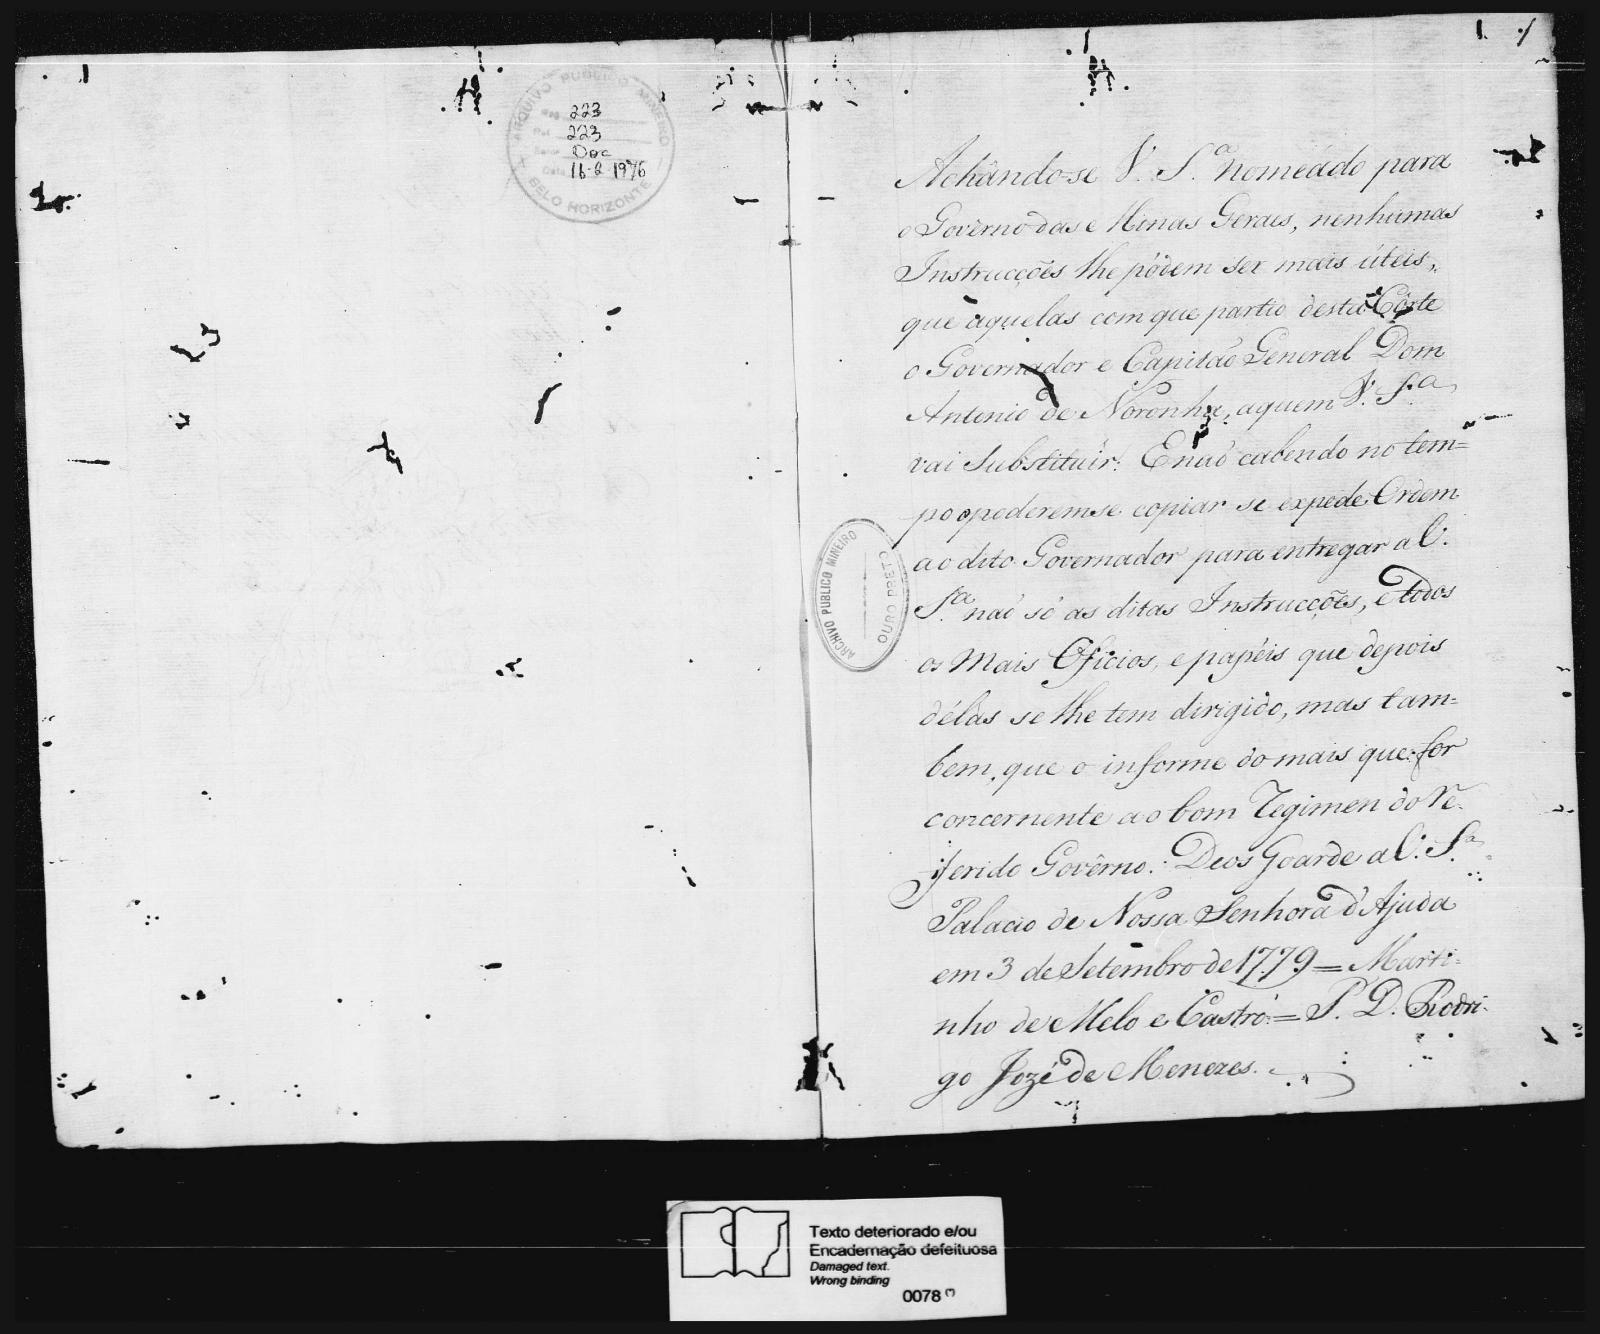 ARQUIVO PUBLICO MINEIRO
223
223
Doc
Data 16-2 1976
BELO HORIZONTE
1
Achãndo-se V. S.ª nomeádo para
o Govêrno das Minas Geraes, nenhumas
Instrucçoẽs lhe pódem ser mais úteis,
que àquelas com que partio desta Côrte
o Governador e Capitaõ General Dom
Antonio de Noronha, aquem V. S.ª
vai Substituír: Enaõ cabendo no tem=
po opoderemse copiar se expede Ordem
ao dito Governador para entregar a V.
S.ª naõ só as ditas Instrucçoẽs, e todos
os Mais Oficios, e papéis que depois
délas se lhe tem dirigido, mas tam=
bem, que o informe do mais que for
concernente ao bom Regimen do Re-
ferido Govêrno: Deos Goarde a V. S.ª
Palacio de Nossa Senhora d'Ajuda
em 3 de Setembro de 1779 = Marti=
nho de Melo e Castro = S. D. Rodri-
go Jozé de Menezes.
ARCHIVO PUBLICO MINEIRO
OURO PRETO
Texto deteriorado e/ou
Encadernação defeituosa
Damaged text.
Wrong binding
0078 (*)